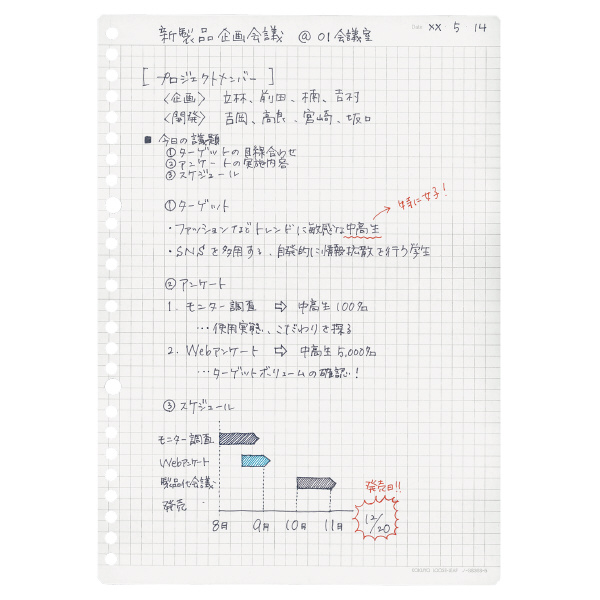 Date XX 5 14
新製品企画会議 @01会議室
[プロジェクトメンバー]
〈企画〉 立林、前田、楠、吉村
〈開発〉 吉岡、高良、宮崎、坂口
■ 今日の議題
①ターゲットの目線合わせ
②アンケートの実施内容
③スケジュール
①ターゲット
特に女子!
・ファッションなどトレンドに敏感な中高生
・SNSを多用する、自発的に情報拡散を行う学生
②アンケート
1. モニター調査 ⇨ 中高生 100名
…使用実態、こだわりを探る
2. Webアンケート ⇨ 中高生 5,000名
…ターゲットボリュームの確認!
③スケジュール
モニター調査
Webアンケート
製品化会議
発売
発売日!!
12/20
8月 9月 10月 11月